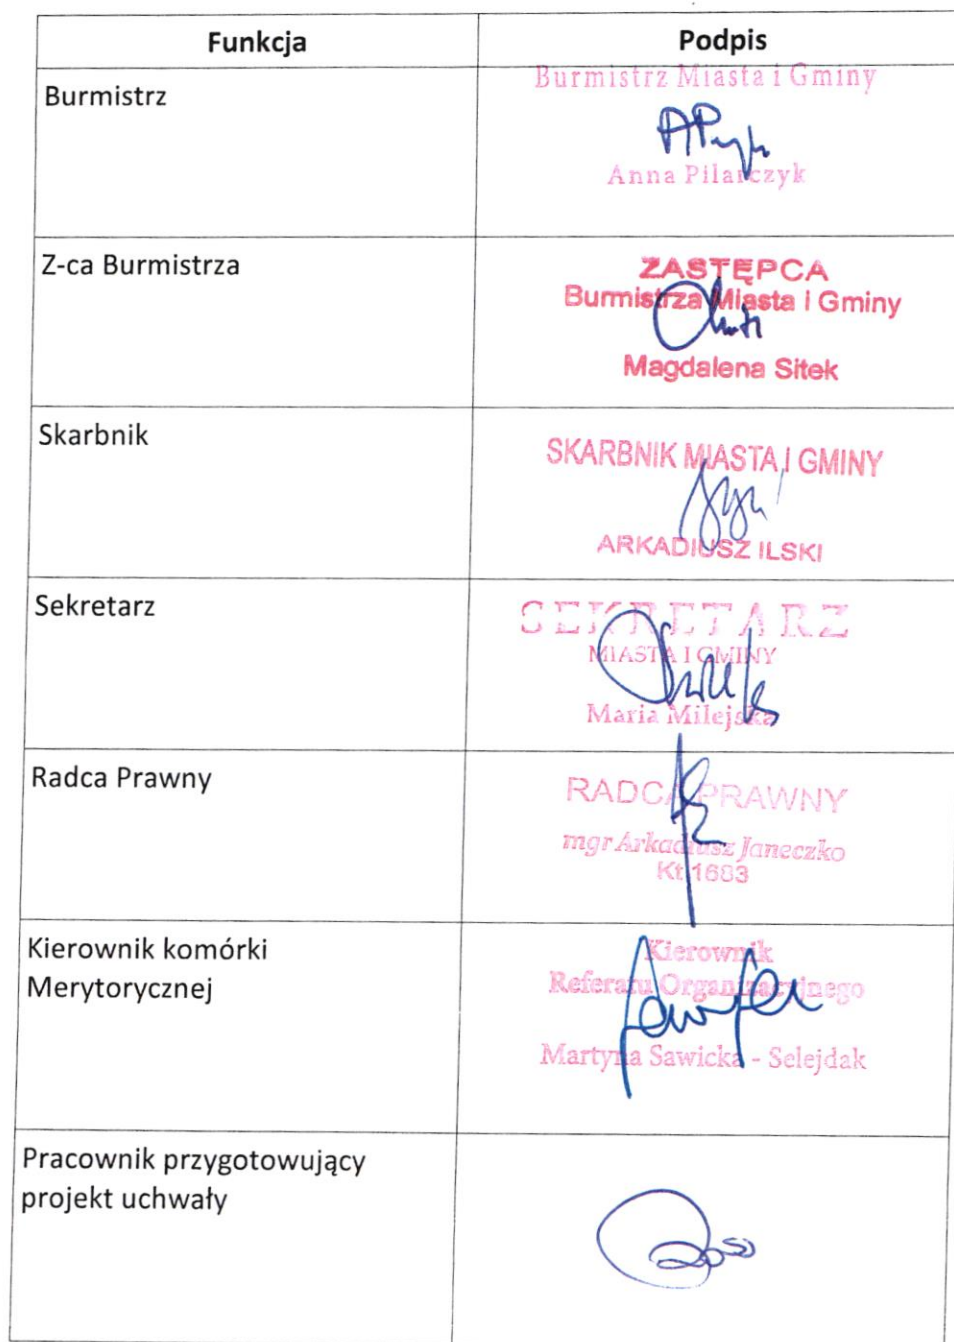 Funkcja
Podpis
Burmistrz
Burmistrz Miasta i Gminy
Anna Pilarczyk
Z-ca Burmistrza
ZASTĘPCA
Burmistrza Miasta i Gminy
Magdalena Sitek
Skarbnik
SKARBNIK MIASTA I GMINY
ARKADIUSZ ILSKI
Sekretarz
SEKRETARZ
MIASTA I GMINY
Maria Milejska
Radca Prawny
RADCA PRAWNY
mgr Arkadiusz Janeczko
Kt 1683
Kierownik komórki
Merytorycznej
Kierownik
Referatu Organizacyjnego
Martyna Sawicka - Selejdak
Pracownik przygotowujący
projekt uchwały